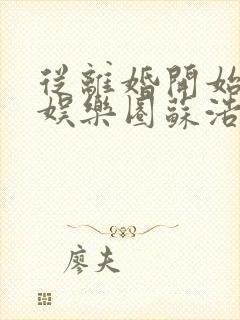 從離婚開始
娛樂圈蘇浩
廖夫